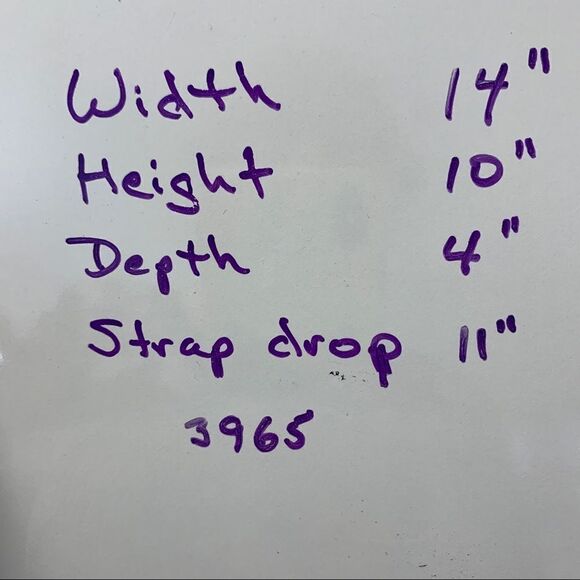 Width 14"
Height 10"
Depth 4"
Strap drop 11"
3965